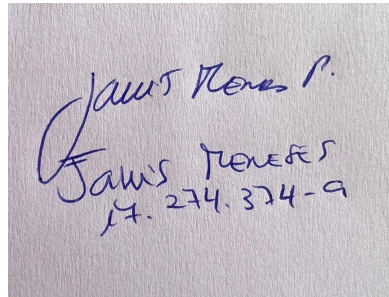 Janis Meneses P.
Janis Meneses
17.274.374-9